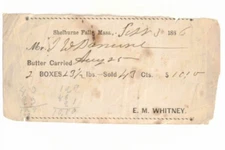 Shelburne Falls, Mass., Sept 186
Mr.
Butter Carried Aug 25
2 BOXES 23½ lbs.—Sold 43 Cts.
E. M. WHITNEY.